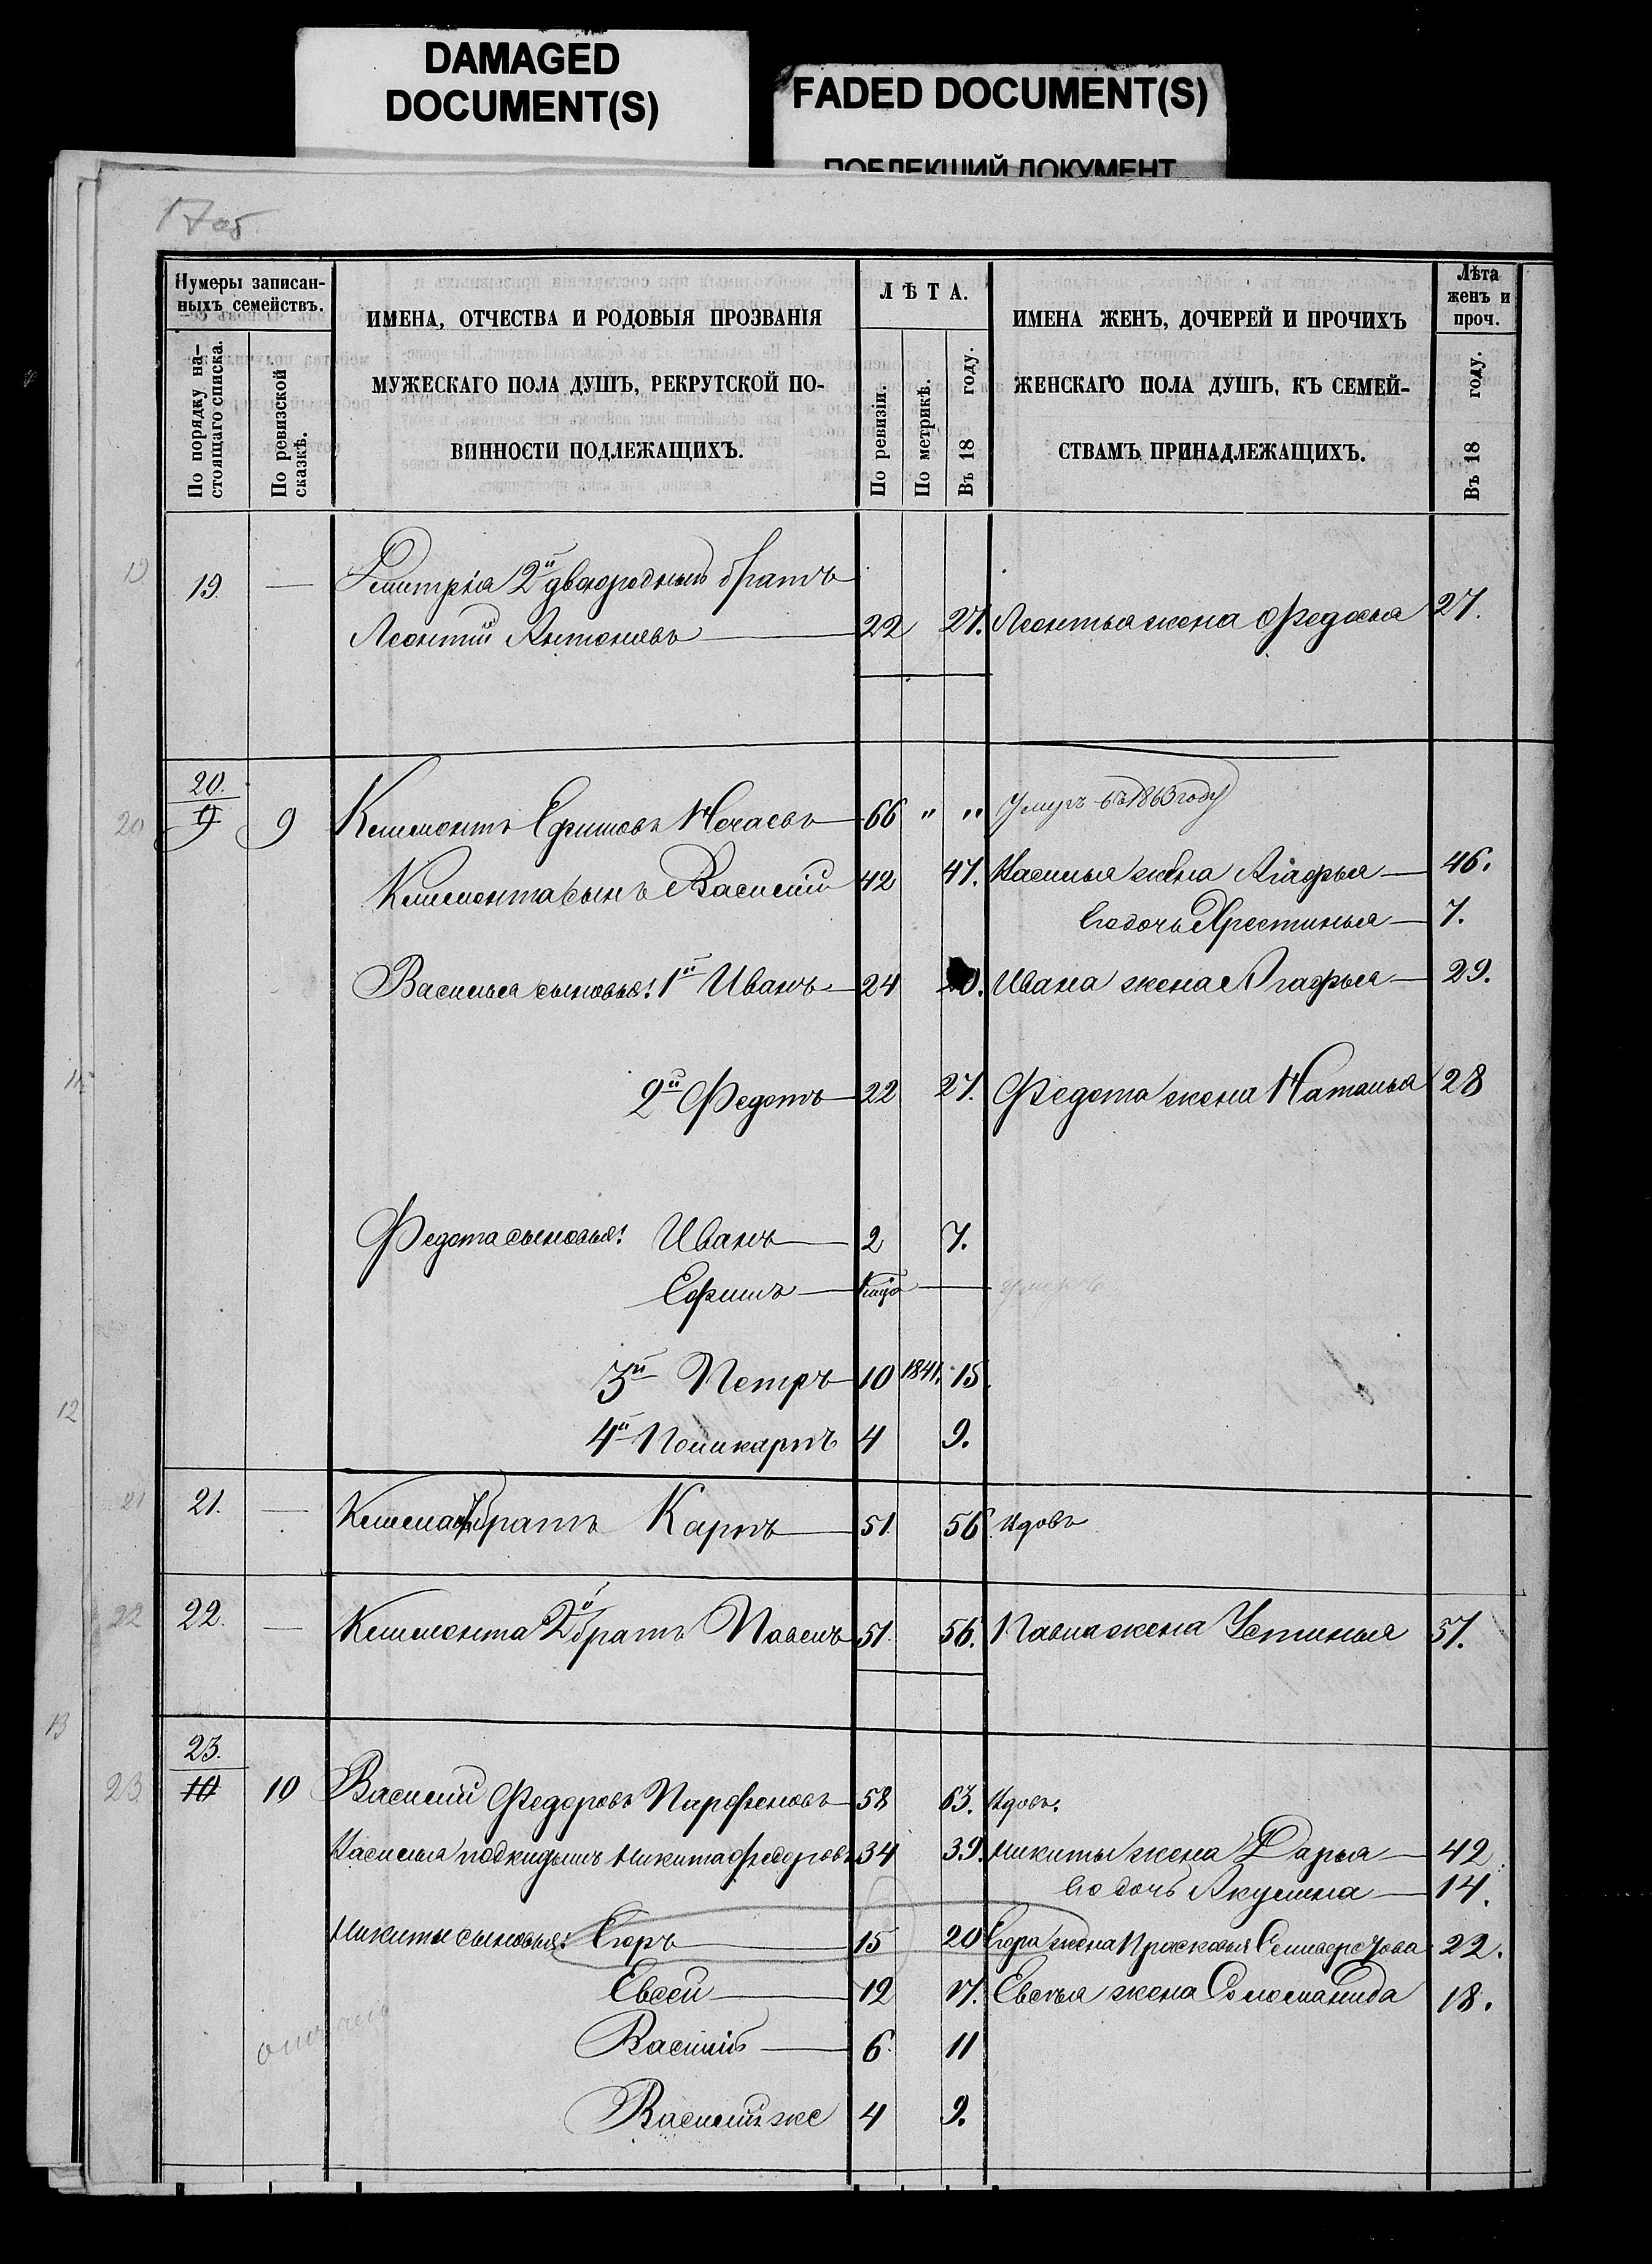 DAMAGED
DOCUMENT(S)
FADED DOCUMENT(S)
ПОБЛЕКШИЙ ДОКУМЕНТ
17об
Нумеры записан-
ныхъ семействъ.
По порядку на-
стоящаго списка.
По ревизской
сказкѣ.
ИМЕНА, ОТЧЕСТВА И РОДОВЫЯ ПРОЗВАНІЯ
МУЖЕСКАГО ПОЛА ДУШЪ, РЕКРУТСКОЙ ПО-
ВИННОСТИ ПОДЛЕЖАЩИХЪ.
ЛѢТА.
По ревизіи.
По метрикѣ.
Въ 18 году.
ИМЕНА ЖЕНЪ, ДОЧЕРЕЙ И ПРОЧИХЪ
ЖЕНСКАГО ПОЛА ДУШЪ, КЪ СЕМЕЙ-
СТВАМЪ ПРИНАДЛЕЖАЩИХЪ.
Лѣта
женъ и
проч.
Въ 18 году.
19 19. — Димитрія 2й двоюродный братъ
Леонтій Антоновъ 22 27. Леонтья жена Федосья 27.
20 20. 9 9 Климонтъ Ефимовъ Нечаевъ 66 " " Умеръ въ 1863 году
Климонта сынъ Василій 42 47. Василья жена Агафья 46.
Его дочь Христинья 7.
Василья сыновья: 1й Иванъ 24 Ивана жена Агафья 29.
2й Федотъ 22 27. Федота жена Наталья 28
Федота сыновья: Иванъ 2 7.
Ефимъ умеръ
3й Петръ 10 1841. 15.
4й Поликарпъ 4 9.
21 21. — братъ Карпъ 51 56 Вдовъ
22 22. — Климонта 2й братъ Павелъ 51. 56. Павла жена Устинья 57.
23 23. 10 10 Василій Федоровъ Парфеновъ 58 63. Вдовъ.
Василья подкидышъ Никита Федоровъ 34 39. Никиты жена Дарья 42
Его дочь Акулина 14.
Никиты сыновья: Егоръ 15 20 Егора жена Прасковья 22.
Евсей 12 17. Евсея жена Соломанида 18.
Василій 6. 11
Василій же 4 9.
11
12
13